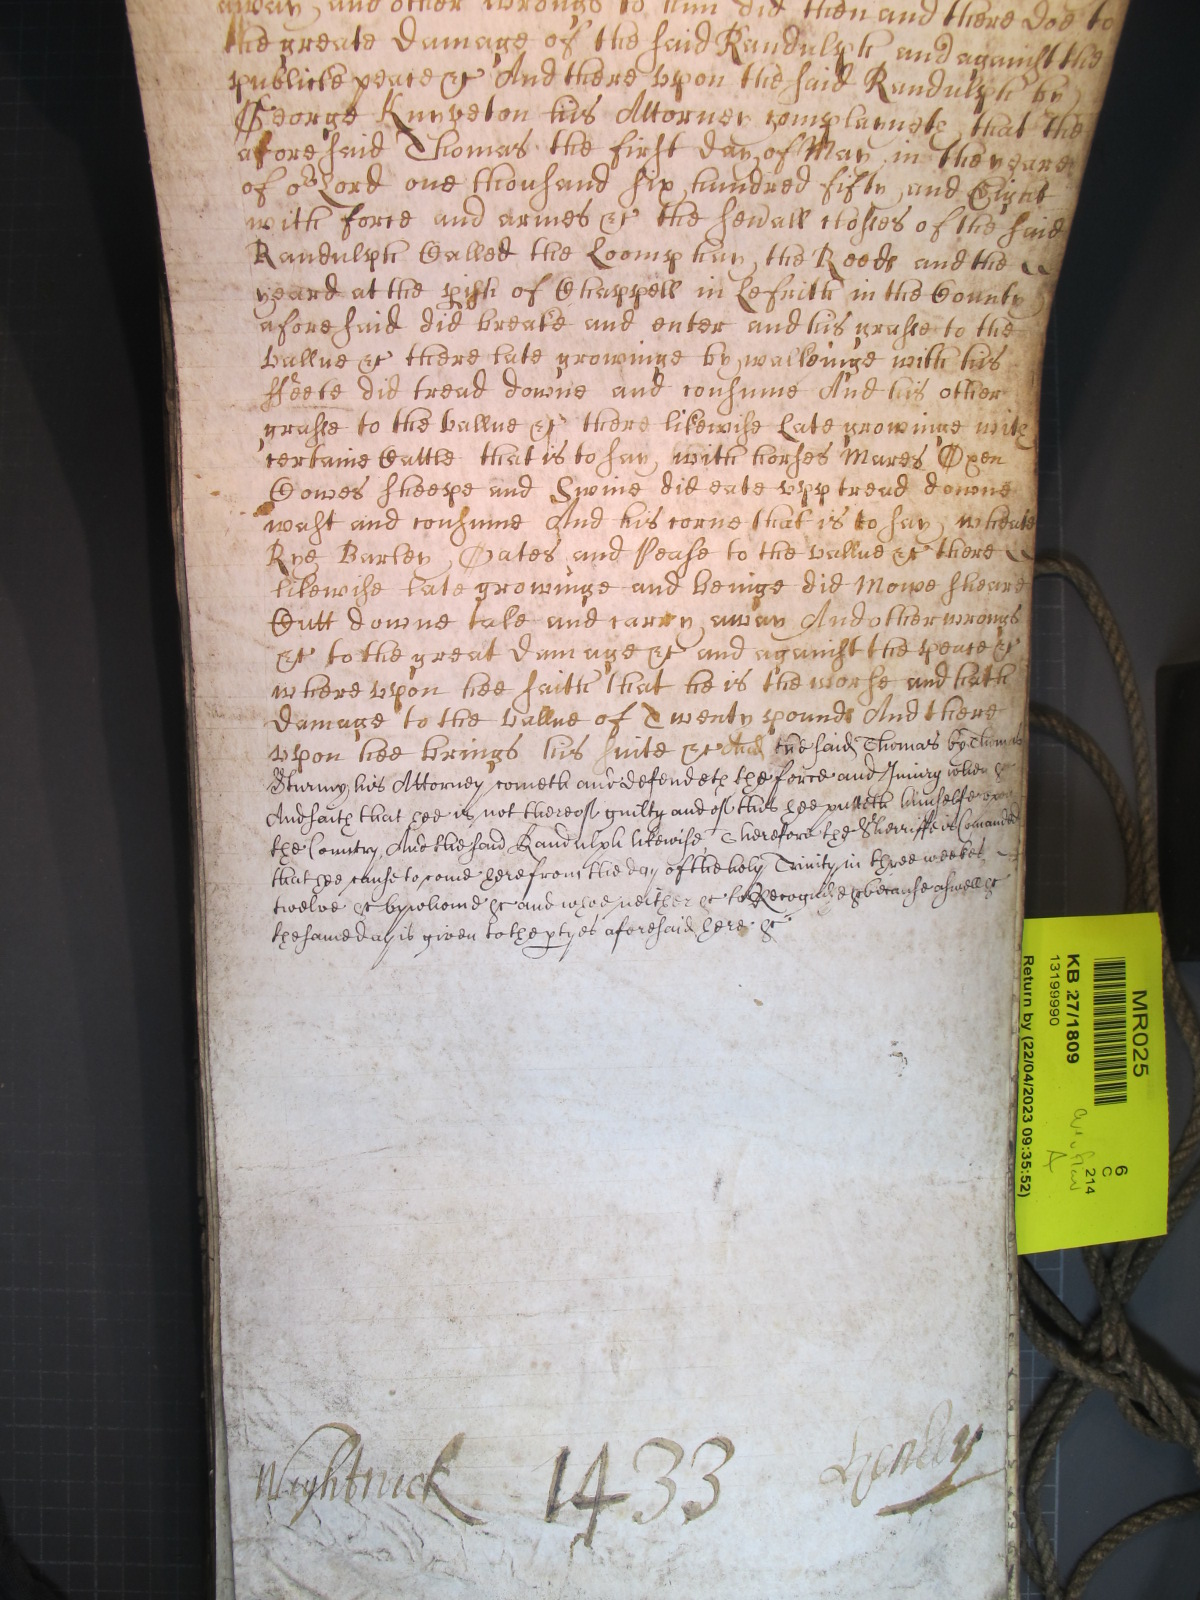 away, and other wrongs to him did then and there doe to
the greate damage of the said Randulph and against the
publicke peace &c And there vpon the said Randulph by
George Knyveton his Attorney complayneth that the
aforesaid Thomas the first day of May in the yeare
of or Lord one thousand six hundred fifty and Eight
with force and armes &c the severall closses of the said
Randulph Called the Loomp hay, the Reeds and the
yeard at the pish of Chappell in le frith in the County
aforesaid did breake and enter and his grasse to the
vallue &c there late growinge by walkinge with his
ffeete did tread downe and consume And his other
grasse to the vallue &c there likewise late growinge with
certaine Cattle that is to say, with horses Mares Oxen
Cowes sheepe and Swine did eate vpp tread downe
wast and consume And his corne that is to say, wheate
Rye Barley, Oates, and Pease to the vallue &c there
likewise late growinge and beinge did Mowe sheare
Cutt downe take and carry away And other wrongs
&c to the great damage &c and against the peace &c
where vpon hee saith that he is the worse and hath
damage to the vallue of Twenty pounds And there
vpon hee brings his suite &c And the said Thomas by Thomas
Sturmy his Attorney cometh and defendeth the force and Iniury when &c
And saith that hee is not thereof guilty and of this hee putteth himselfe vpon
the Country, And the said Randulph likewise, Therefore the Sherriffe is Comanded
that hee cause to come here from the day of the holy Trinity in three weekes
twelve &c by whome &c and whoe neither &c to Recognize &c because aswell &c
the same day is given to the ptyes aforesaid here &c
Wightwick 1433 Henley
MR025
KB 27/1809
13199990
Return by (22/04/2023 09:35:52)
6
C
214
A